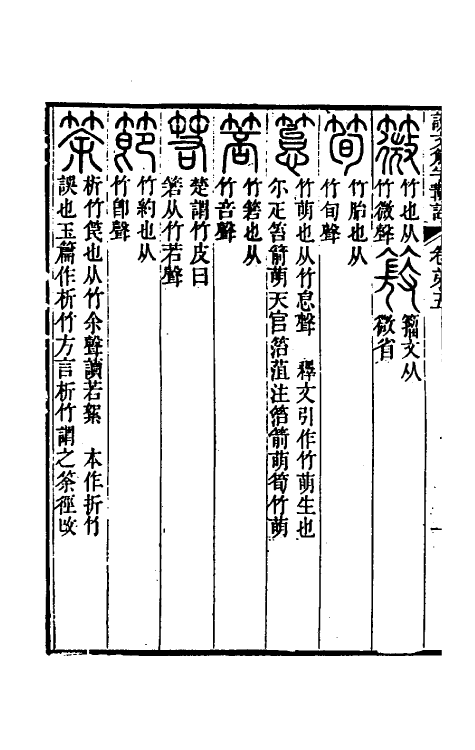 說文解字⿰ 卷弟五
𥳈 竹也从竹微聲 籀文从微省
筍 竹胎也从竹旬聲
䈚 竹萌也从竹怠聲 釋文引作竹萌生也尒疋笞箭萌天官箈菹注箈箭萌筍竹萌
䇾 竹箬也从竹音聲
箬 楚謂竹皮曰箬从竹若聲
節 竹約也从竹卽聲
筡 析竹笢也从竹余聲讀若絮 本作折竹誤也玉篇作析竹方言析竹謂之筡徑改